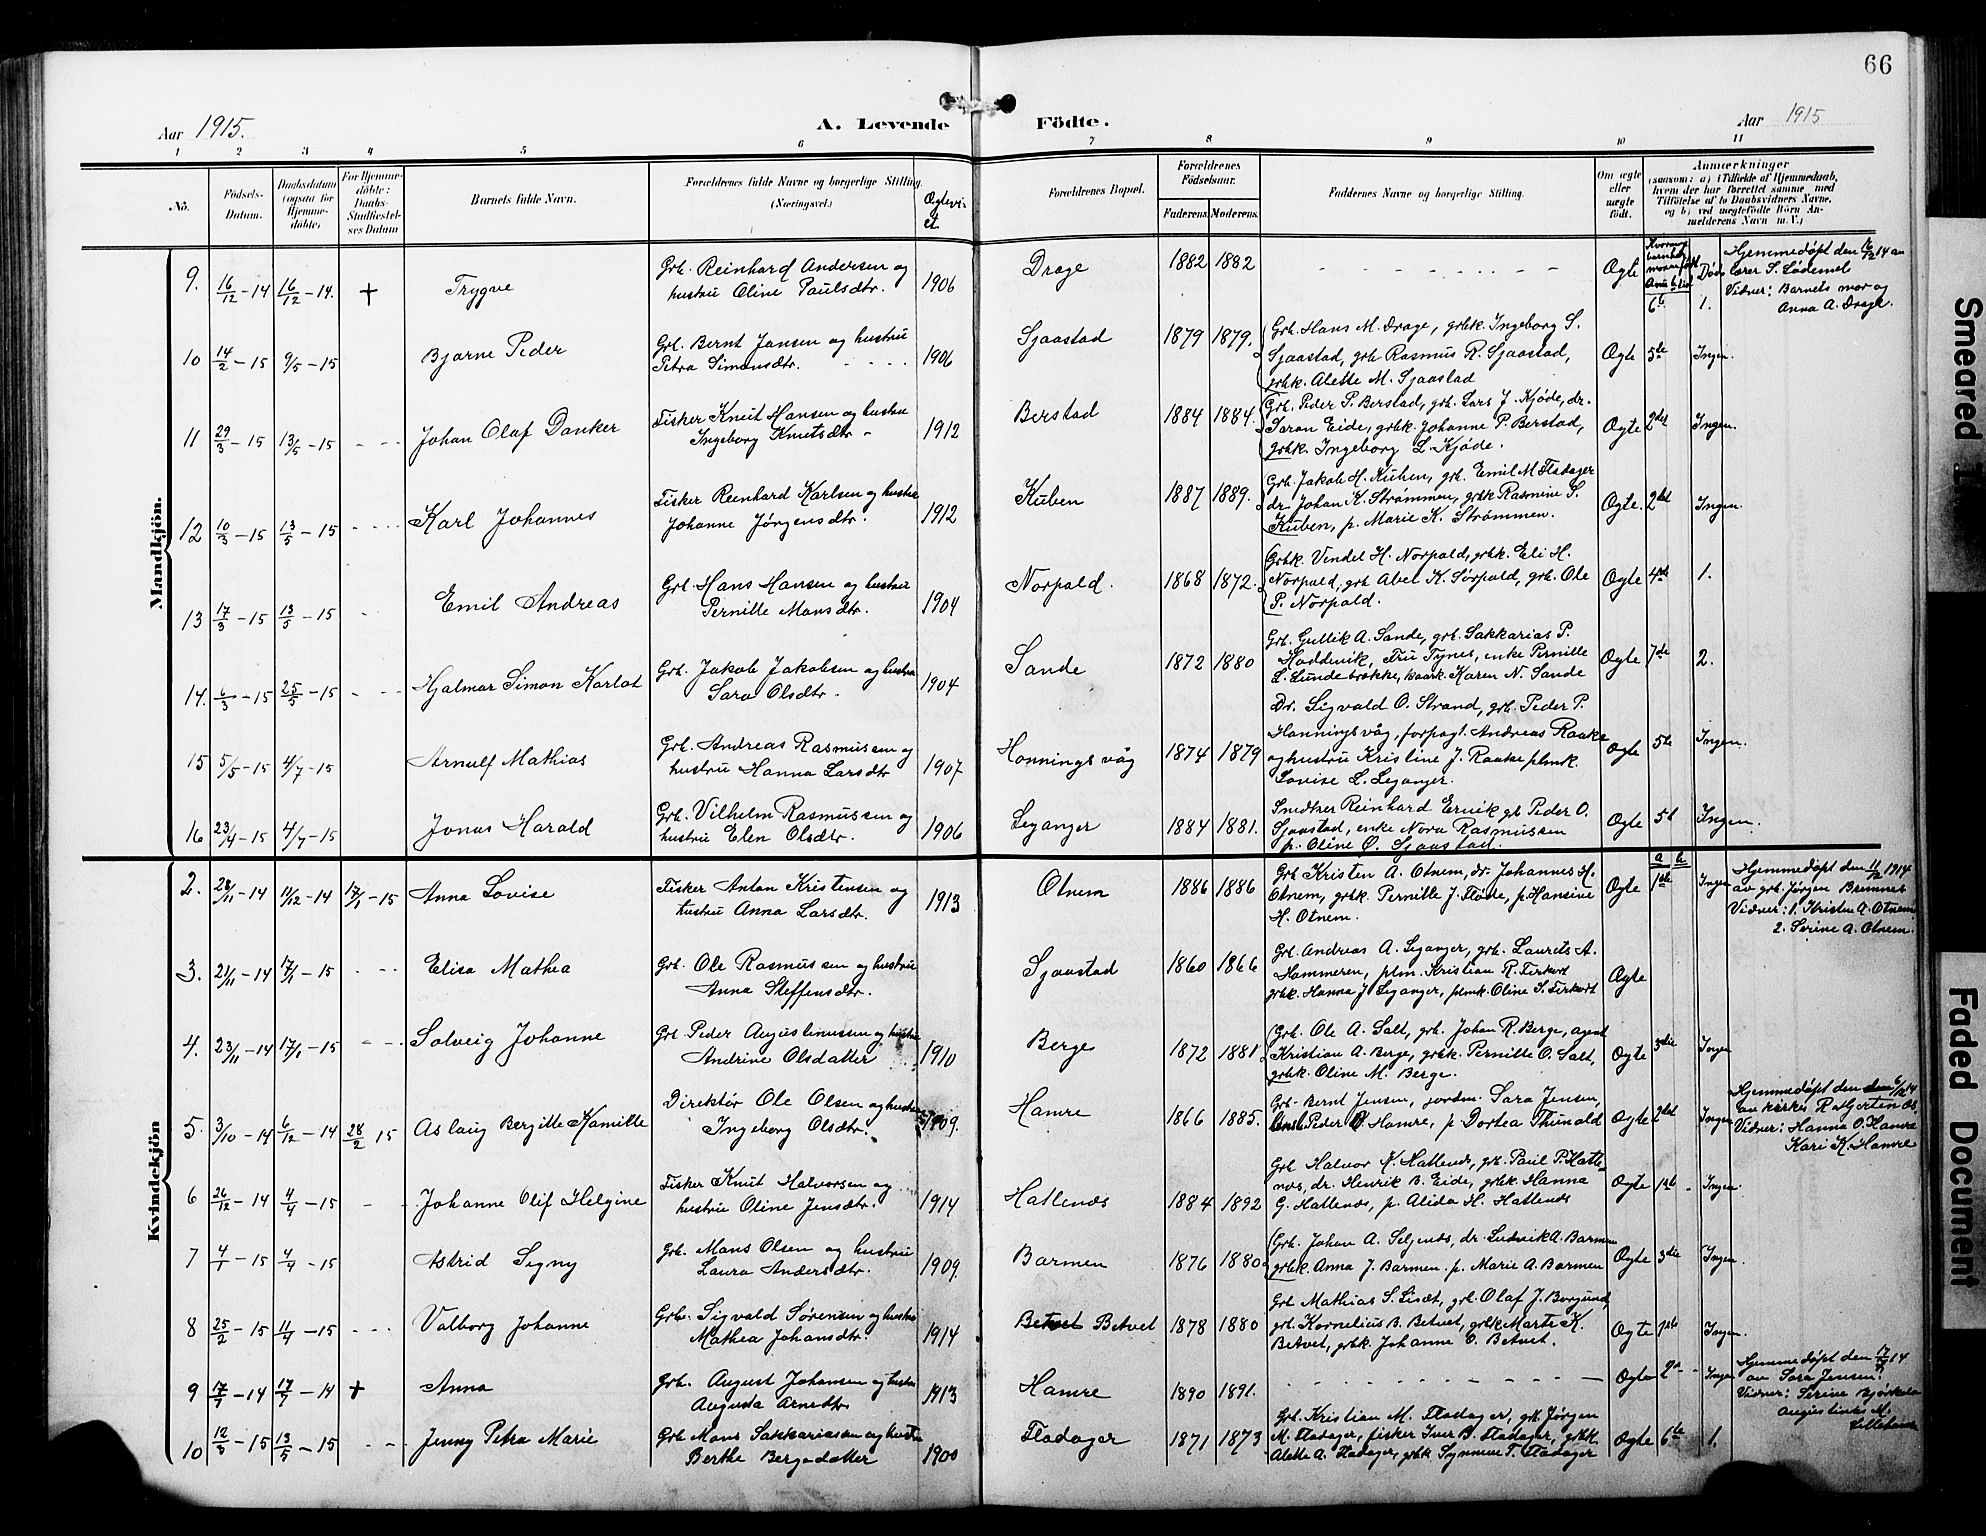 66
Aar 1915.
A. Levende Födte.
Aar 1915
1 2 3 4 5 6 7 8 9 10 11
No.
Födsels-Datum.
Daabsdatum (ogsaa for Hjemme-döbte)
For Hjemme-döbte: Daabs-Stadfæstel-ses Datum
Barnets fulde Navn.
Forældrenes fulde Navne og borgerlige Stilling.
(Næringsvei.)
Egtevi-et.
Forældrenes Bopæl.
Forældrenes Födselsaar.
Faderens. Moderens.
Faddernes Navne og borgerlige Stilling.
Om ægte eller uægte födt.
Anmærkninger
(saasom: a) i Tilfælde af Hjemmedaab,
hvem der har forrettet samme, med
Tilföielse af to Daabsvidners Navne,
og b) ved uægtefödte Börn An-
melderens Navn m. V.)
Mandkjön.
9. 16/12-14 16/12-14. + Trygve
Grb. Reinhard Andersen og
hustru Oline Paulsdtr. 1906
Drage 1882 1882 Ogte 6te 1.
Hjemmedøpt den 16/12 14 av
lærer S. Lødemel
Vidner: Barnets mor og
Anna A. Drage.
10 14/2-15 9/5-15 Bjarne Peder
Grb. Bernt Jansen og hustru
Petra Simonsdtr. 1906
Sjaastad 1879 1879.
Grb. Hans M. Drage, grbk. Ingeborg S.
Sjaastad, grb Rasmus R. Sjaastad,
grbk. Alette M. Sjaastad
Ogte 5te Ingen.
11 29/3-15 13/5-15 Johan Olaf Danker
Fisker Knut Hansen og hustru
Ingeborg Knutsdtr 1912
Berstad 1884 1884.
Grb. Peder P. Berstad, grb. Lars J. Kjøde, dr.
Søran Eide, grbk. Johanne P. Berstad,
grbk. Ingeborg L. Kjøde.
Ogte 2det Ingen.
12 10/3-15 13/5-15 Karl Johannes
Fisker Reinhard Karlsen og hustru
Johanne Jørgensdtr. 1912
Kuben 1887 1889.
Grb. Jakob H. Kuben, grb. Emil M Fladager
dr. Johan K. Strømmen, grbk Rasmine S.
Kuben, p. Marie K. Strømmen.
Ogte. 2det Ingen.
13 17/3-15 13/5-15 Emil Andreas
Grb. Hans Hansen og hustru
Pernille Monsdtr. 1904
Norpald. 1868 1872.
Grbk. Vendel H. Norpald, grbk. Eli H.
Norpald, grb Abel K. Sørpald, grb. Ole
P. Norpald.
Ogte 4de 1.
14. 6/3-15 25/5-15 Hjalmar Simon Karlot
Grb. Jakob Jakobsen og hustru
Sara Olsdtr. 1904
Sande 1872 1880
Grb. Gullik A. Sande, grb. Sakkarias P.
Hoddevik, Fru Tynes, enke Pernille
L. Lundebrække, kaark. Karen N. Sande
Ogte 7de 2.
15 5/5-15 4/7-15 Arnulf Mathias
Grb. Andreas Rasmussen og
hustru Hanna Larsdtr 1907
Honningsvåg 1874 1879
Dr. Sigvald O. Strand, grb. Peder P.
Honningsvåg, forpagt. Andreas Raake
og hustru Kristine J. Raake plmk.
Lovise L. Leganger.
Ogte 5te Ingen.
16 23/4-15 4/7-15 Jonas Harald
Grb. Vilhelm Rasmussen og
hustru Elen Olsdtr. 1906
Leganger 1884 1881.
Snedker Reinhard Ervik gb Peder O.
Sjaastad, enke Nora Rasmussen
p. Oline O. Sjaastad.
Ogte 5t Ingen.
Kvindekjön
2. 28/11-14 11/12-14 17/1-15 Anna Lovise
Fisker Anton Kristensen og
hustru Anna Larsdtr. 1913
Otnem 1886 1886
Grb Kristen A. Otnem, dr. Johannes H.
Otnem, grbk. Pernille J. Fløde, p. Hansine
H. Otnem.
Ogte a b 1ste Ingen
Hjemmedøpt den 11/12 1914
av grb. Jørgen Bremnes
Vidner: 1. Kristen A. Otnem
2. Serine A. Otnem.
3. 21/11-14 17/1-15 Elisa Mathea
Grb. Ole Rasmussen og hustru
Anna Steffensdtr.
Sjaastad 1860 1866
Grb. Andreas A. Leganger, grb. Laurets A.
Hammeren, plm. Kristian R.
grbk. Hanna J Leganger, plmk. Oline S.
Ægte
4. 23/11-14 17/1-15 Solveig Johanne
Grb. Peder Augustinussen og hustru
Andrine Olsdatter 1910
Berge 1872 1881
Grb. Ole A. Salt, grb. Johan R. Berge, agent
Kristian A. Berge, grbk. Pernille O. Salt,
grbk. Oline M. Berge.
Ogte 3die Ingen
5. 3/10-14 6/12-14 28/2 15 Aslaug Bergitte Kamille
Direktør Ole Olsen og hustru
Ingeborg Olsdtr. 1909.
Hamre 1866 1885.
Grb. Bernt Jensen, jordm. Sara Jensen,
Peder O. Hamre, p Dortea Thunald
Ogte 2det Ingen
Hjemmedøpt den 6/12 14
av
Vidner: Hanna O. Hamre
Kari K. Hamre
6 26/12-14 4/4-15 Johanne Olif Helgine
Fisker Knut Halvorsen og
hustru Oline Jensdtr. 1914
Hatlenes 1884 1892
Grb Halvor K. Hatlenes, grb. Paul P. Hatle-
nes, dr. Henrik B. Eide, grbk Hanna
G. Hatlenes, p. Alida H. Hatlenes
Ogte 1ste Ingen.
7 4/1-15 4/4-15 Astrid Signy
Grb. Mons Olsen og hustru
Laura Andersdtr. 1909.
Barmen 1876 1880
Grb. Johan A. Seljenes, dr. Ludvik A. Barmen
grbk. Anna J. Barmen. p. Marie A. Barmen
Ogte 3die Ingen.
8 25/2-15 11/4-15 Valborg Johanne
Grb. Sigvald Sørensen og hustru
Mathea Johansdtr. 1914
Betvet 1878 1880
Grb Mathias S. Liset, grb. Olaf J. Borgund,
grb. Kornelius B. Betvet, grbk Marte K.
Betvet, grbk. Johanne O. Betvet.
Ogte 1ste Ingen.
9 17/7-14 17/7-14 + Anna
Grb. August Johansen og hustru
Augusta Arnedtr. 1913
Hamre 1890 1891. Ogte Ingen
Hjemmedøpt den 17/7 14
av Sara Jensen.
Vidner: Serine
Augustinus M.
10 12/3-15 13/5-15 Jenny Petra Marie
Grb. Mons Sakkariassen og hustru
Berthe Bergesdatter 1900
Fladager 1871 1873
Grb. Kristian M. Fladager, grb. Jørgen
M. Fladager, fisker Iver B. Fladager, grbk.
Alette A. Fladager, grbk Synneve T. Fladager
Ogte 6te 1.
Smeared
Faded Document